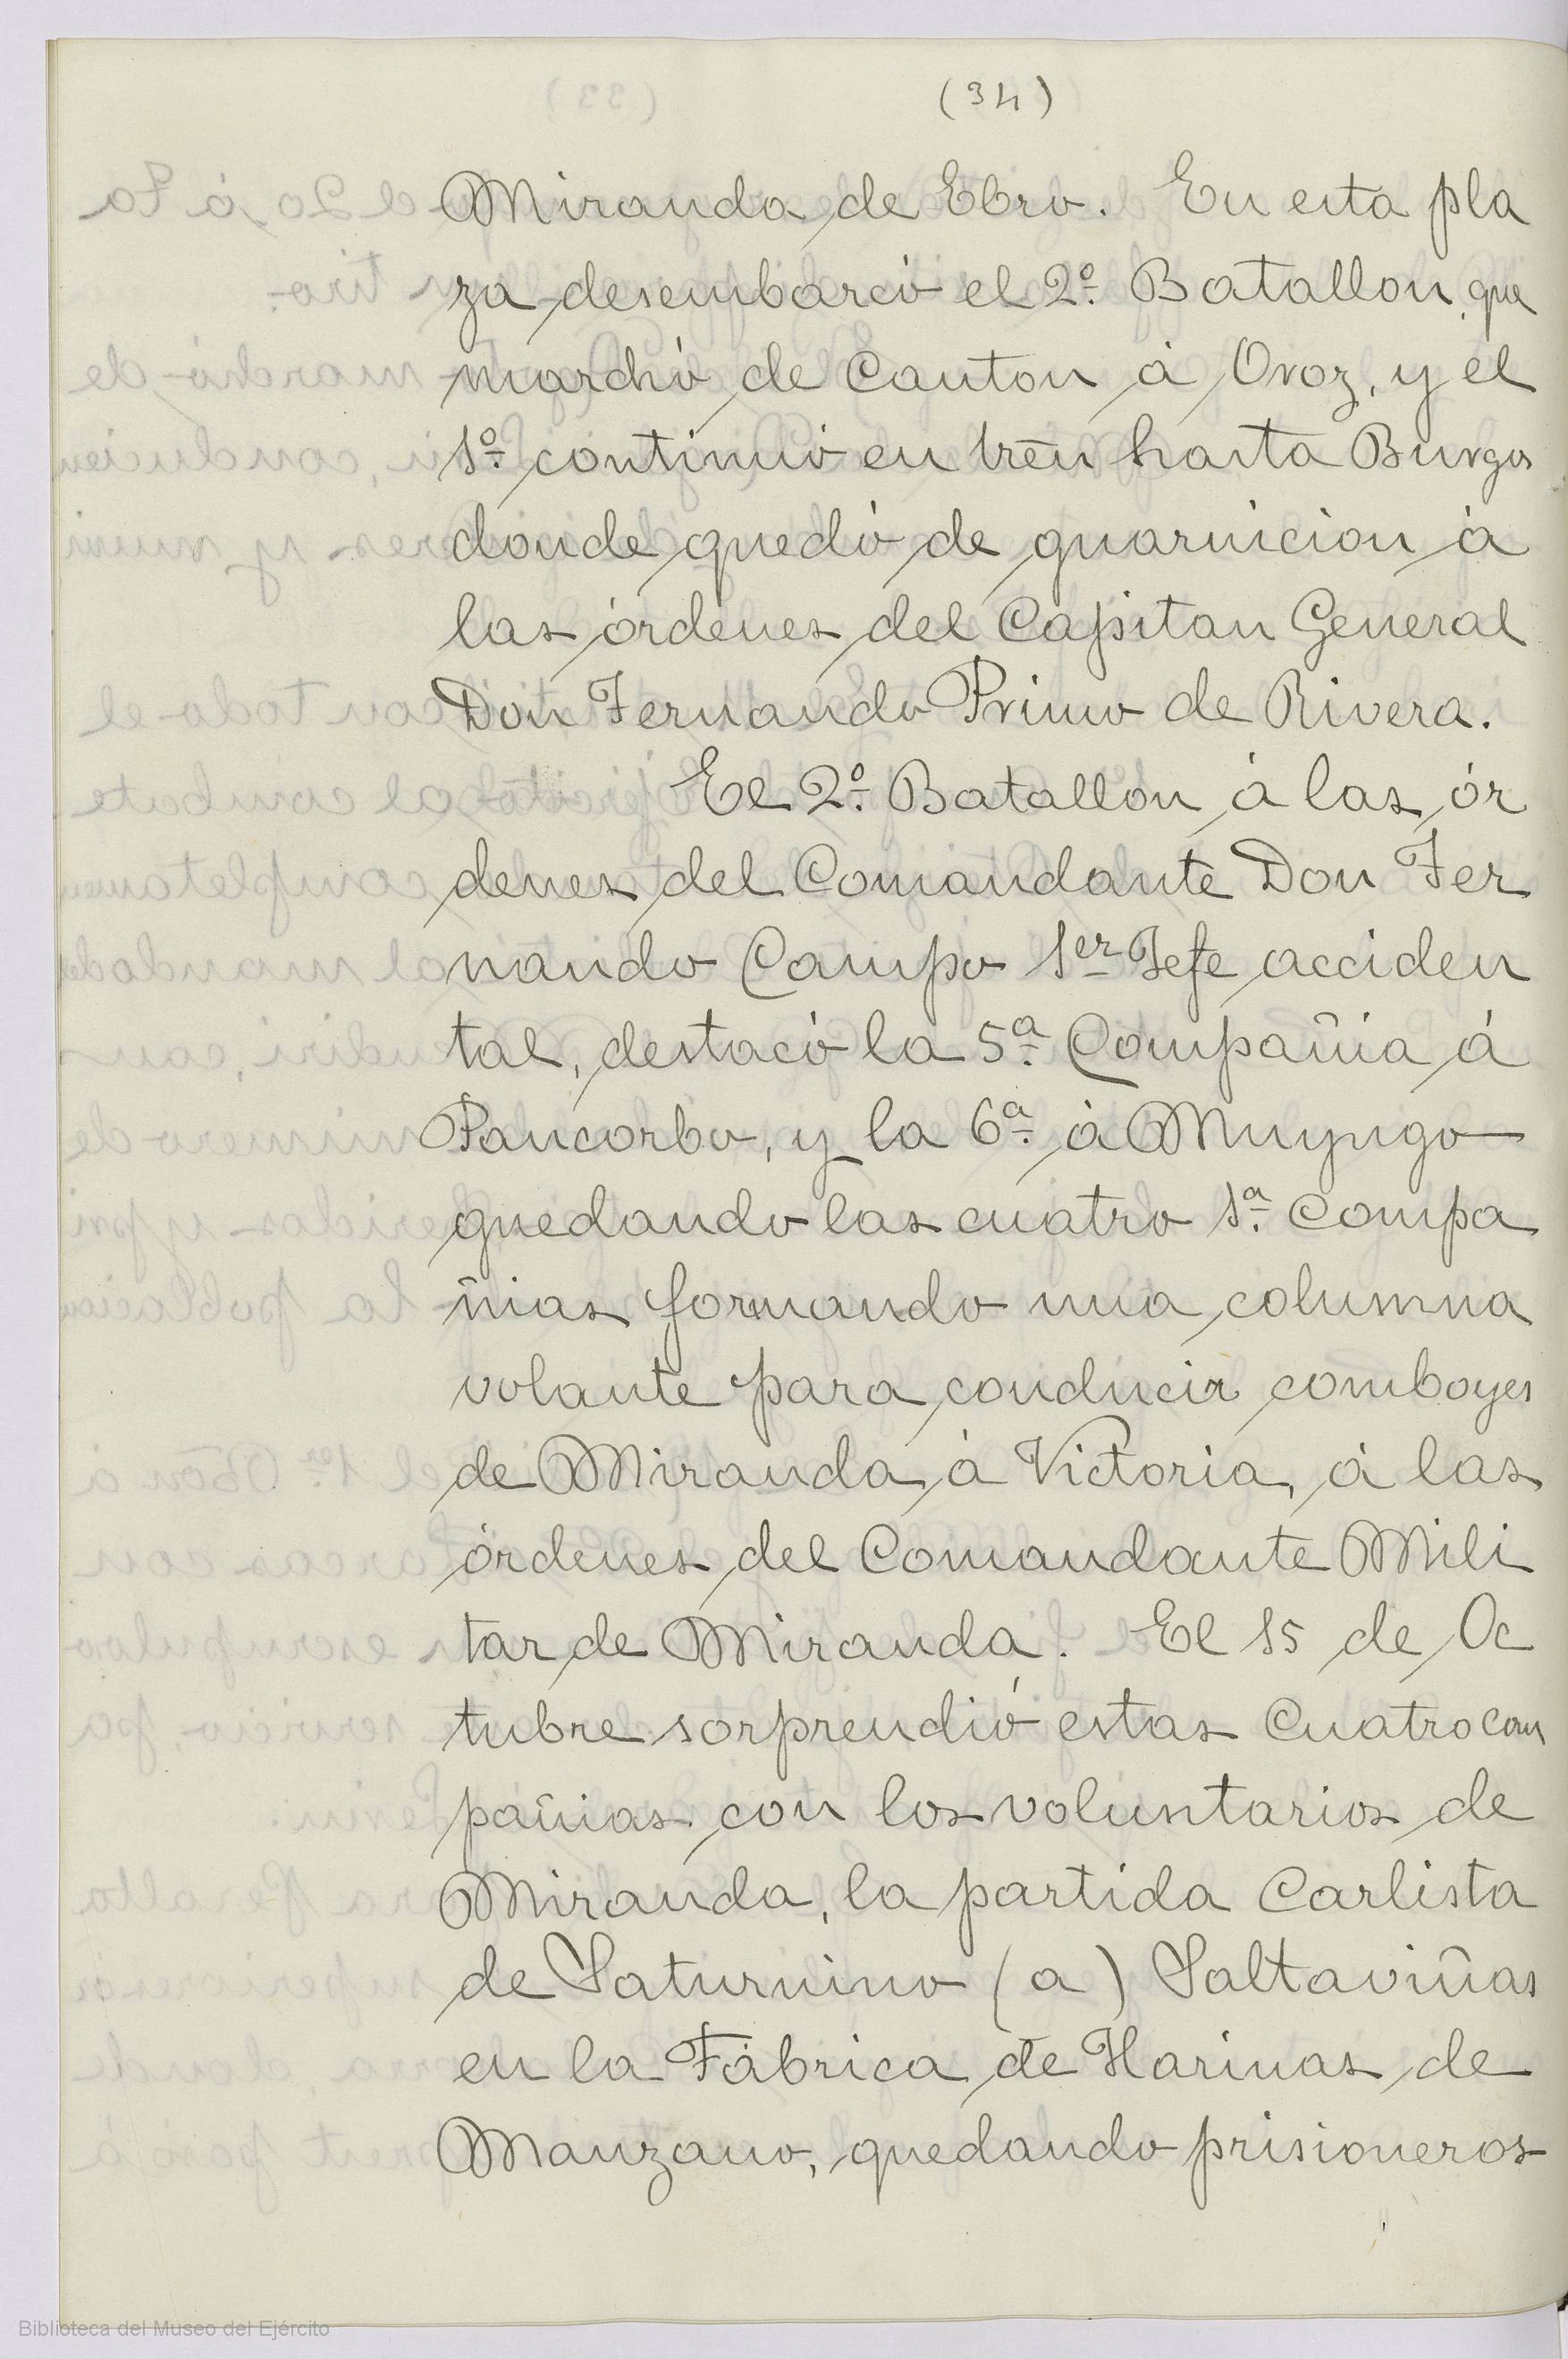 (34)
Miranda de Ebro. En esta pla
za desembarcó el 2º. Batallon que
marchó de Canton á Oroz, y el
1º. continuó en tren hasta Burgos
donde quedó de guarnicion á
las órdenes del Capitan General
Don Fernando Primo de Rivera.
El 2º. Batallon á las ór
denes del Comandante Don Fer
nando Campo 1er Jefe acciden
tal, destacó la 5ª. Compañia á
Pancorbo, y la 6ª. á Muyugo
quedando las cuatro 1ª. Compa
ñias formando una columna
volante para conducir comboyes
de Miranda á Victoria, á las
órdenes del Comandante Mili
tar de Miranda. El 15 de Oc
tubre sorprendió estas Cuatro Com
pañias con los voluntarios de
Miranda, la partida Carlista
de Saturnino (a) Saltaviñas
en la Fábrica de Harinas de
Manzano, quedando prisioneros
Biblioteca del Museo del Ejército